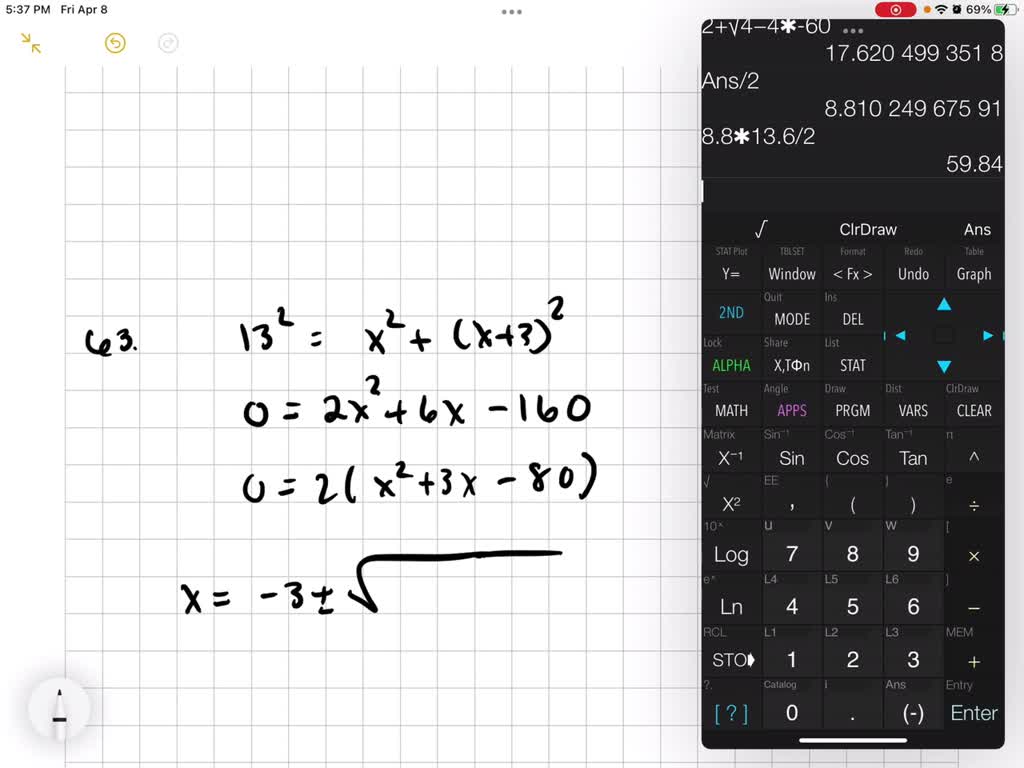 5:37 PM Fri Apr 8
69%
2+√4−4✱-60
17.620 499 351 8
Ans/2
8.810 249 675 91
8.8✱13.6/2
59.84
√ ClrDraw Ans
STAT Plot TBLSET Format Redo Table
Y= Window < Fx > Undo Graph
Quit Ins
2ND MODE DEL
Lock Share List
ALPHA X,TΦn STAT
Test Angle Draw Dist ClrDraw
MATH APPS PRGM VARS CLEAR
Matrix Sin⁻¹ Cos⁻¹ Tan⁻¹ π
X⁻¹ Sin Cos Tan ^
√ EE { } e
X² , ( ) ÷
10ˣ u v w [
Log 7 8 9 ×
eˣ L4 L5 L6 ]
Ln 4 5 6 −
RCL L1 L2 L3 MEM
STO 1 2 3 +
?. Catalog i Ans Entry
[ ? ] 0 . (-) Enter
63. 13² = x² + (x+3)²
0 = 2x² + 6x − 160
0 = 2(x² + 3x − 80)
x = −3 ± √